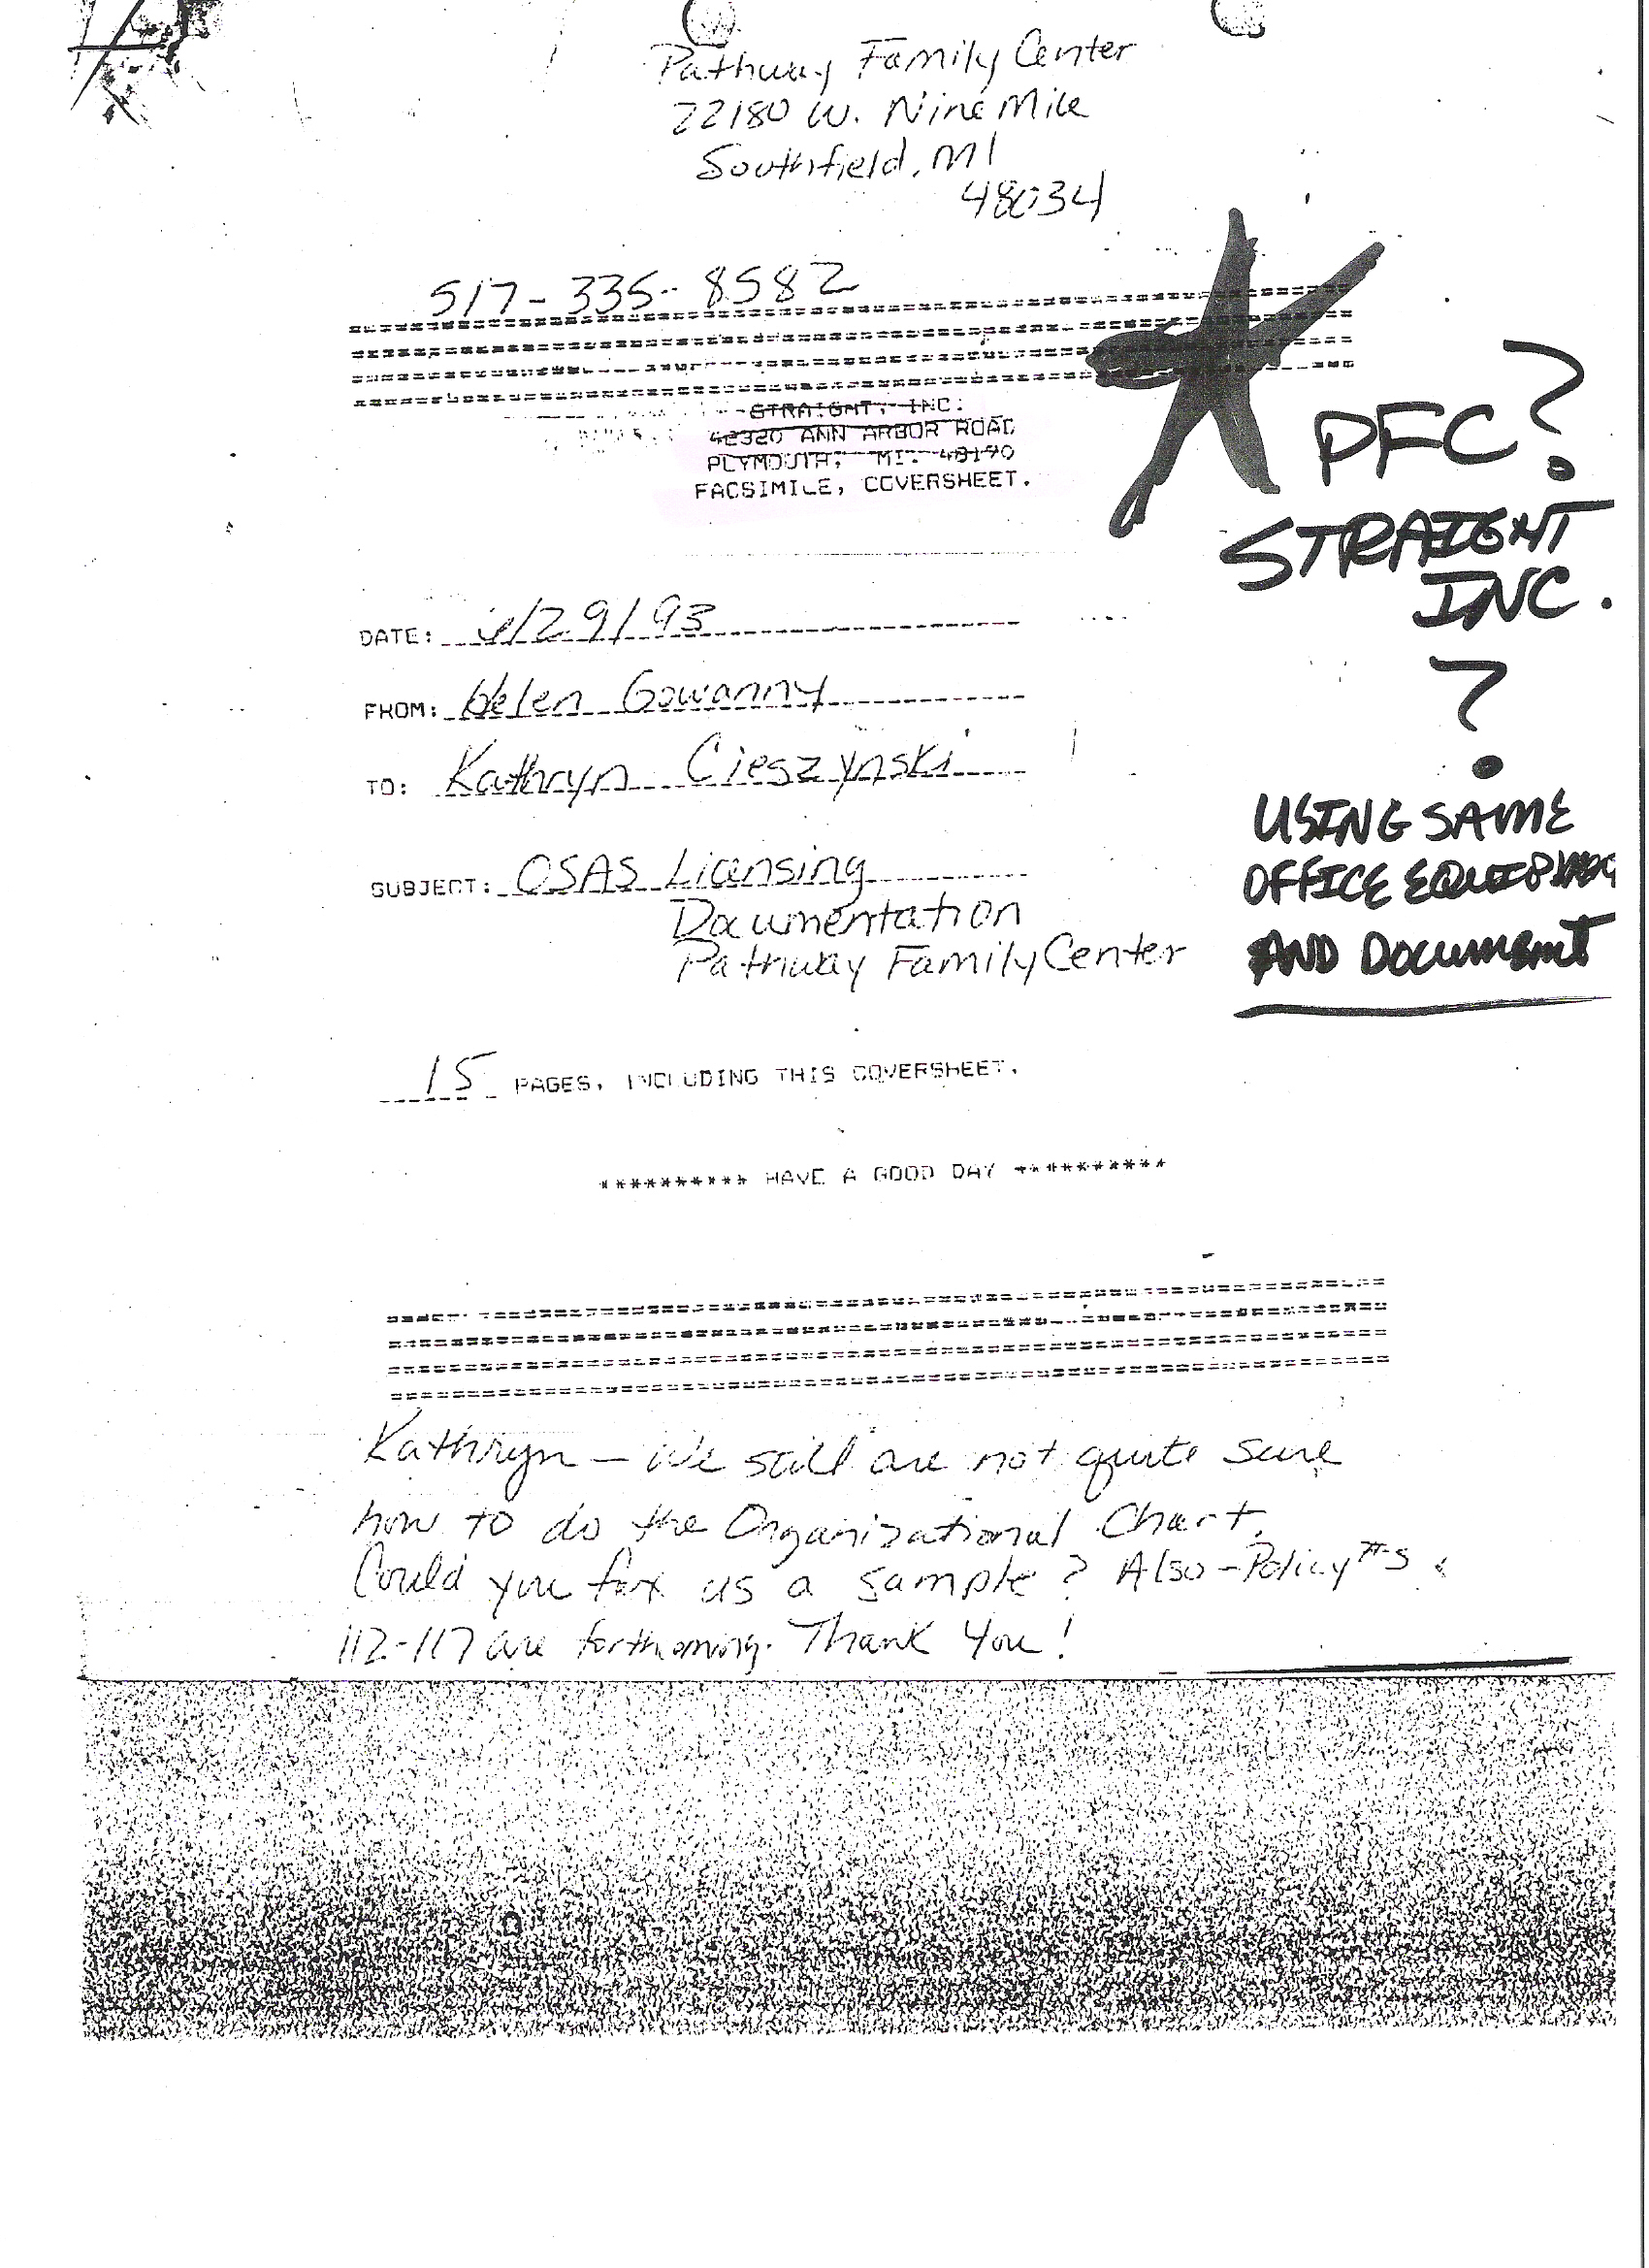 Pathway Family Center
22180 W. Nine Mile
Southfield, MI
48034
517-335-8582
STRAIGHT, INC.
42320 ANN ARBOR ROAD
PLYMOUTH, MI. 48170
FACSIMILE, COVERSHEET.
PFC?
STRAIGHT
INC.
?
USING SAME
OFFICE EQUIPMENT
AND DOCUMENT
DATE: /29/93
FROM: Helen Gowanny
TO: Kathryn Cieszynski
SUBJECT: OSAS Licensing
Documentation
Pathway Family Center
15 PAGES, INCLUDING THIS COVERSHEET.
********** HAVE A GOOD DAY **********
Kathryn - We still are not quite sure
how to do the Organizational Chart.
Could you fax us a sample? Also - Policy #s
112-117 are forthcoming. Thank You!